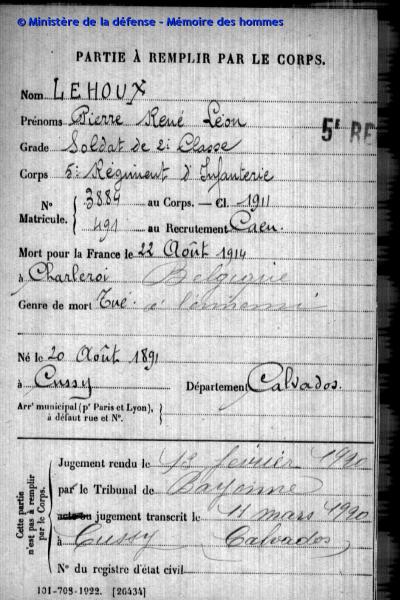 © Ministère de la défense - Mémoire des hommes
PARTIE À REMPLIR PAR LE CORPS.
Nom LEHOUX
Prénoms Pierre René Léon
Grade Soldat de 2e Classe
5e RE
Corps 5e Régiment d'Infanterie
N° Matricule. { 3884 au Corps. — Cl. 1911
491 au Recrutement Caen.
Mort pour la France le 22 Août 1914
à Charleroi Belgique
Genre de mort Tué à l'ennemi
Né le 20 Août 1891
à Cussy Département Calvados.
Arrt municipal (pr Paris et Lyon), à défaut rue et N°. }
Cette partie n'est pas à remplir par le Corps.
Jugement rendu le 12 février 1920
par le Tribunal de Bayonne
acte ou jugement transcrit le 11 mars 1920
à Cussy (Calvados)
N° du registre d'état civil
101-708-1922. [26434]